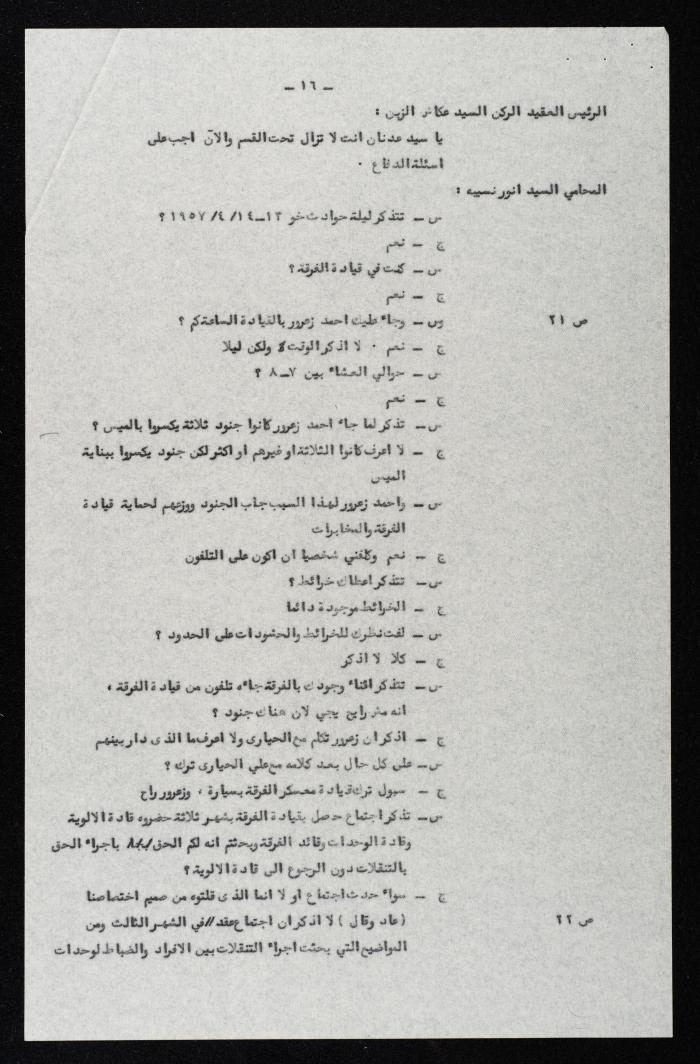 – ١٦ –
الرئيس العقيد الركن السيد عكاش الزبن :
يا سيد عدنان انت لا تزال تحت القسم والآن اجب على
اسئلة الدفاع .
المحامي السيد انور نسيبه :
س – تتذكر ليلة حوادث خو ١٣–١٤/ ٤/ ١٩٥٧ ؟
ج – نعم
س – كنت في قيادة الفرقة ؟
ج – نعم
ص ٢١
وس – وجاء عليك احمد زعرور بالقيادة الساعة كم ؟
ج – نعم . لا اذكر الوقت ولكن ليلا
س – حوالي العشاء بين ٧–٨ ؟
ج – نعم
س – تذكر لما جاء احمد زعرور كانوا جنود ثلاثة يكسروا بالميس ؟
ج – لا اعرف كانوا الثلاثة او غيرهم او اكثر لكن جنود يكسروا ببناية
الميس
س – واحمد زعرور لهذا السبب جاب الجنود ووزعهم لحماية قيادة
الفرقة والمخابرات
ج – نعم وكلفني شخصيا ان اكون على التلفون
س – تتذكر اعطاك خرائط ؟
ج – الخرائط موجودة دائما
س – لفت نظرك للخرائط والحشودات على الحدود ؟
ج – كلا لا اذكر
س – تتذكر اثناء وجودك بالفرقة جاءه تلفون من قيادة الفرقة ،
انه مش رايح يجي لان هناك جنود ؟
ج – اذكر ان زعرور تكلم مع الحيارى ولا اعرف ما الذى دار بينهم
س – على كل حال بعد كلامه مع علي الحيارى ترك ؟
ج – سبول ترك قيادة معسكر الفرقة بسيارة ، وزعرور راح
س – تذكر اجتماع حصل بقيادة الفرقة بشهر ثلاثة حضروه قادة الالوية
وقادة الوحدات وقائد الفرقة وبحثتم انه لكم الحق باجراء الحق
بالتنقلات دون الرجوع الى قادة الالوية ؟
ج – سواء حدث اجتماع او لا انما الذى قلتوه من صميم اختصاصنا
ص ٢٢
(عاد وقال) لا اذكر ان اجتماع عقد في الشهر الثالث ومن
المواضيع التي بحثت اجراء التنقلات بين الافراد والضباط لوحدات